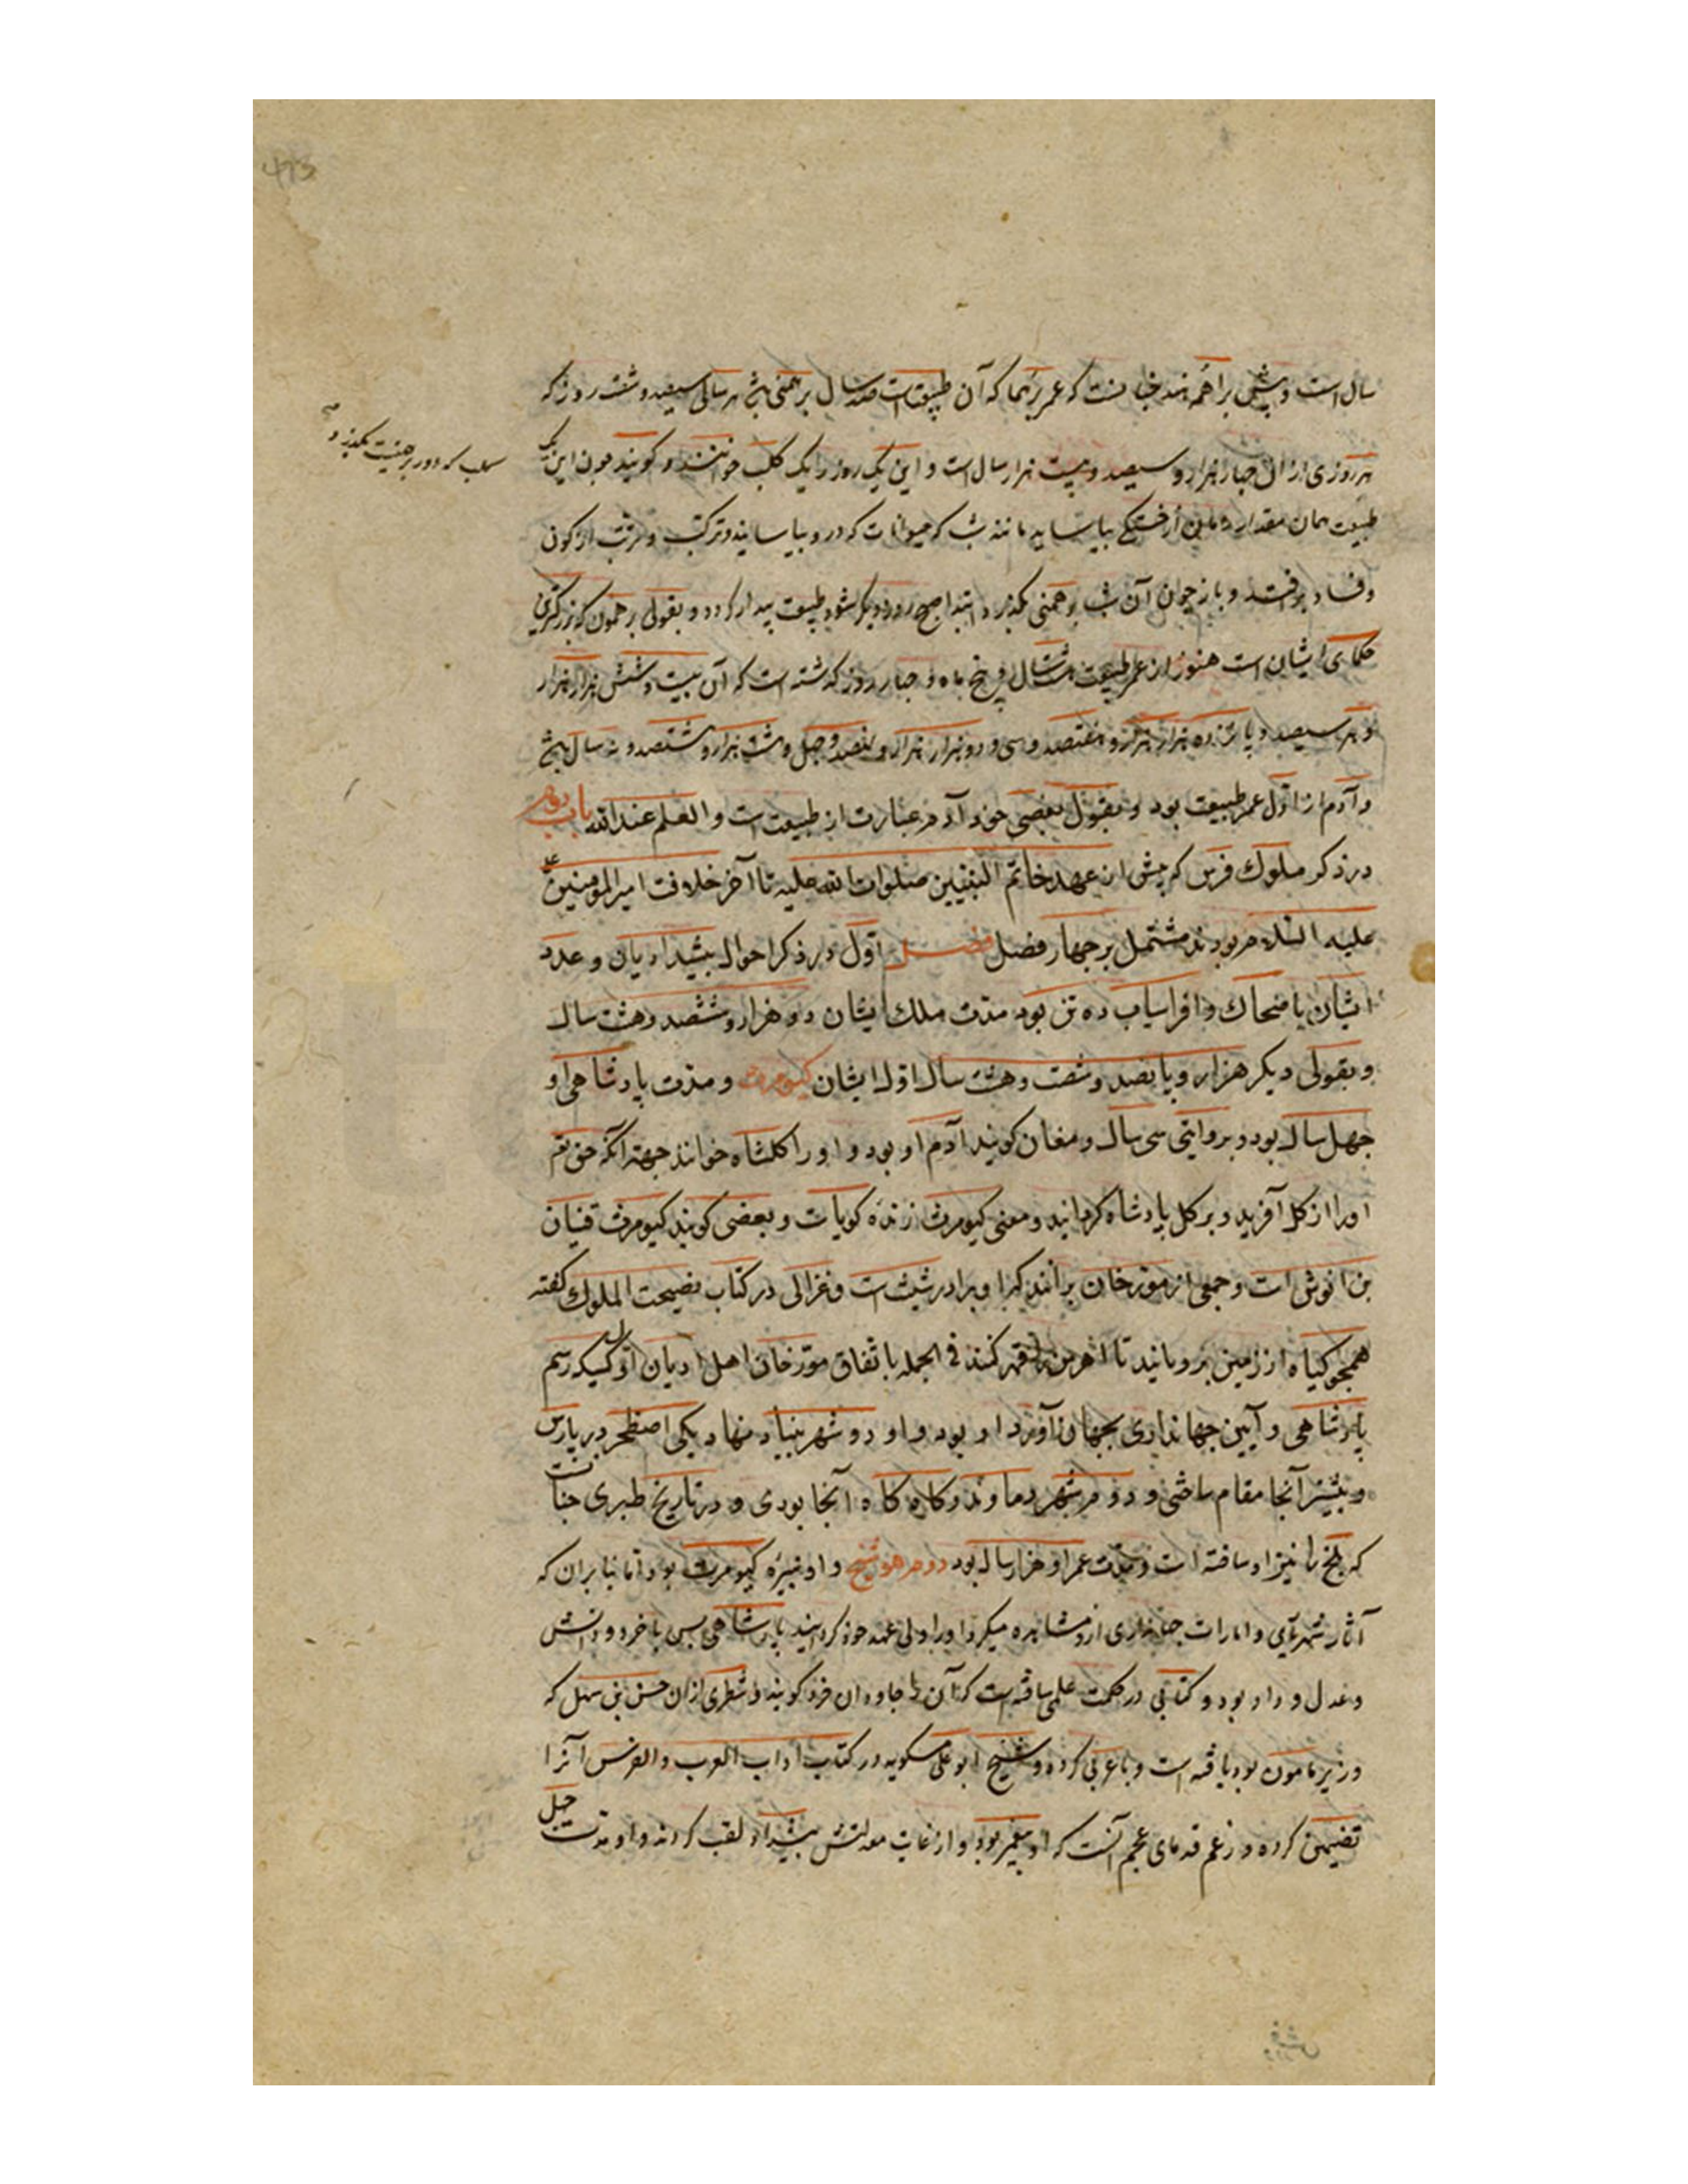 سال است و پیش براهمه هند چنانست که عمر برهما که آن طبیعتست صد سال برهمنی باشد هر سالی سیصد و شصت روز که
هر روزی از آن چهار هزار و سیصد و بیست هزار سال است و این یک روز را یک کلب خوانند و گویند چون این یک
کلب که دور برهمنیت بگذرد صح
طبیعت همان مقدار زمان از خستگی بیاساید مانند شب که حیوانات درو بیاسایند و ترکیب و ترتیب از کون
و فساد بیوفتد و باز چون آن شب برهمنی بگذرد و ابتدا صبح روز دیگر شود طبیعت بیدار گردد و بقول برهمون که بزرگترین
حکمای ایشان است هنوز از عمر طبیعت هشت سال و پنج ماه و چهار روز گذشته است که آن بیست و شش هزار هزار
و سیصد و پانزده هزار هزار و هفتصد و سی و دو هزار هزار و نهصد و چهل و هشت هزار و هشتصد و نه سال باشد
و آدم از اول عمر طبیعت بود و بقول بعضی خود آدم عبارت از طبیعت است و العلم عند الله باب دوم
در ذکر ملوک فرس که پیش از عهد خاتم النبیین صلوات الله علیه تا آخر خلافت امیر المومنین عمر
علیه السلام بودند مشتمل بر چهار فصل فصل اول در ذکر احوال پیشدادیان و عدد
ایشان با ضحاک و افراسیاب ده تن بود مدت ملک ایشان دو هزار و ششصد و هشت سال
و بقولی دیگر هزار و پانصد و شصت و هشت سال اول ایشان کیومرث و مدت پادشاهی او
چهل سال بود و بروایتی سی سال و مغان گویند آدم او بود و او را گلشاه خوانند جهة آنکه حق تع
او را از گل آفرید و بر گل پادشاه گردانید و معنی کیومرث زنده گویاست و بعضی گویند کیومرث قنیان
بن انوش است و جمعی از مورخان برآنند که او برادر شیث است و غزالی در کتاب نصیحت الملوک گفته
همچو گیاه از زمین برویانید تا اهرمن را قهر کند فی الجمله باتفاق مورخان اهل ادیان اول کسیکه رسم
پادشاهی و آیین جهانداری بجهان آورد او بود و او دو شهر بنیاد نهاد یکی اصطخر در پارس
و بیشتر آنجا مقام ساختی و دوم شهر دماوند و گاه گاه آنجا بودی و در تاریخ طبری چنانست
که بلخ را نیز او ساخته است و مدت عمر او هزار سال بود دوم هوشنج و او نبیره کیومرث بود اما بنا بران که
آثار شهریاری و امارات جهانداری ازو مشاهده میکرد او را ولی عهد خود گردانید پادشاهی بس با خرد و دانش
و عدل و داد بود و کتابی در حکمت علمی ساخته است که آن را جاودان خرد گویند و شطری ازان حسن بن سهل که
وزیر مامون بود یافته است و با عربی کرده و شیخ ابو علی مسکویه در کتاب آداب العرب و الفرس آنرا
تضمین کرده و زعم قدمای عجم آنست که او پیغمبر بود و از غایت معدلتش پیشداد لقب کردند و او مدت چهل